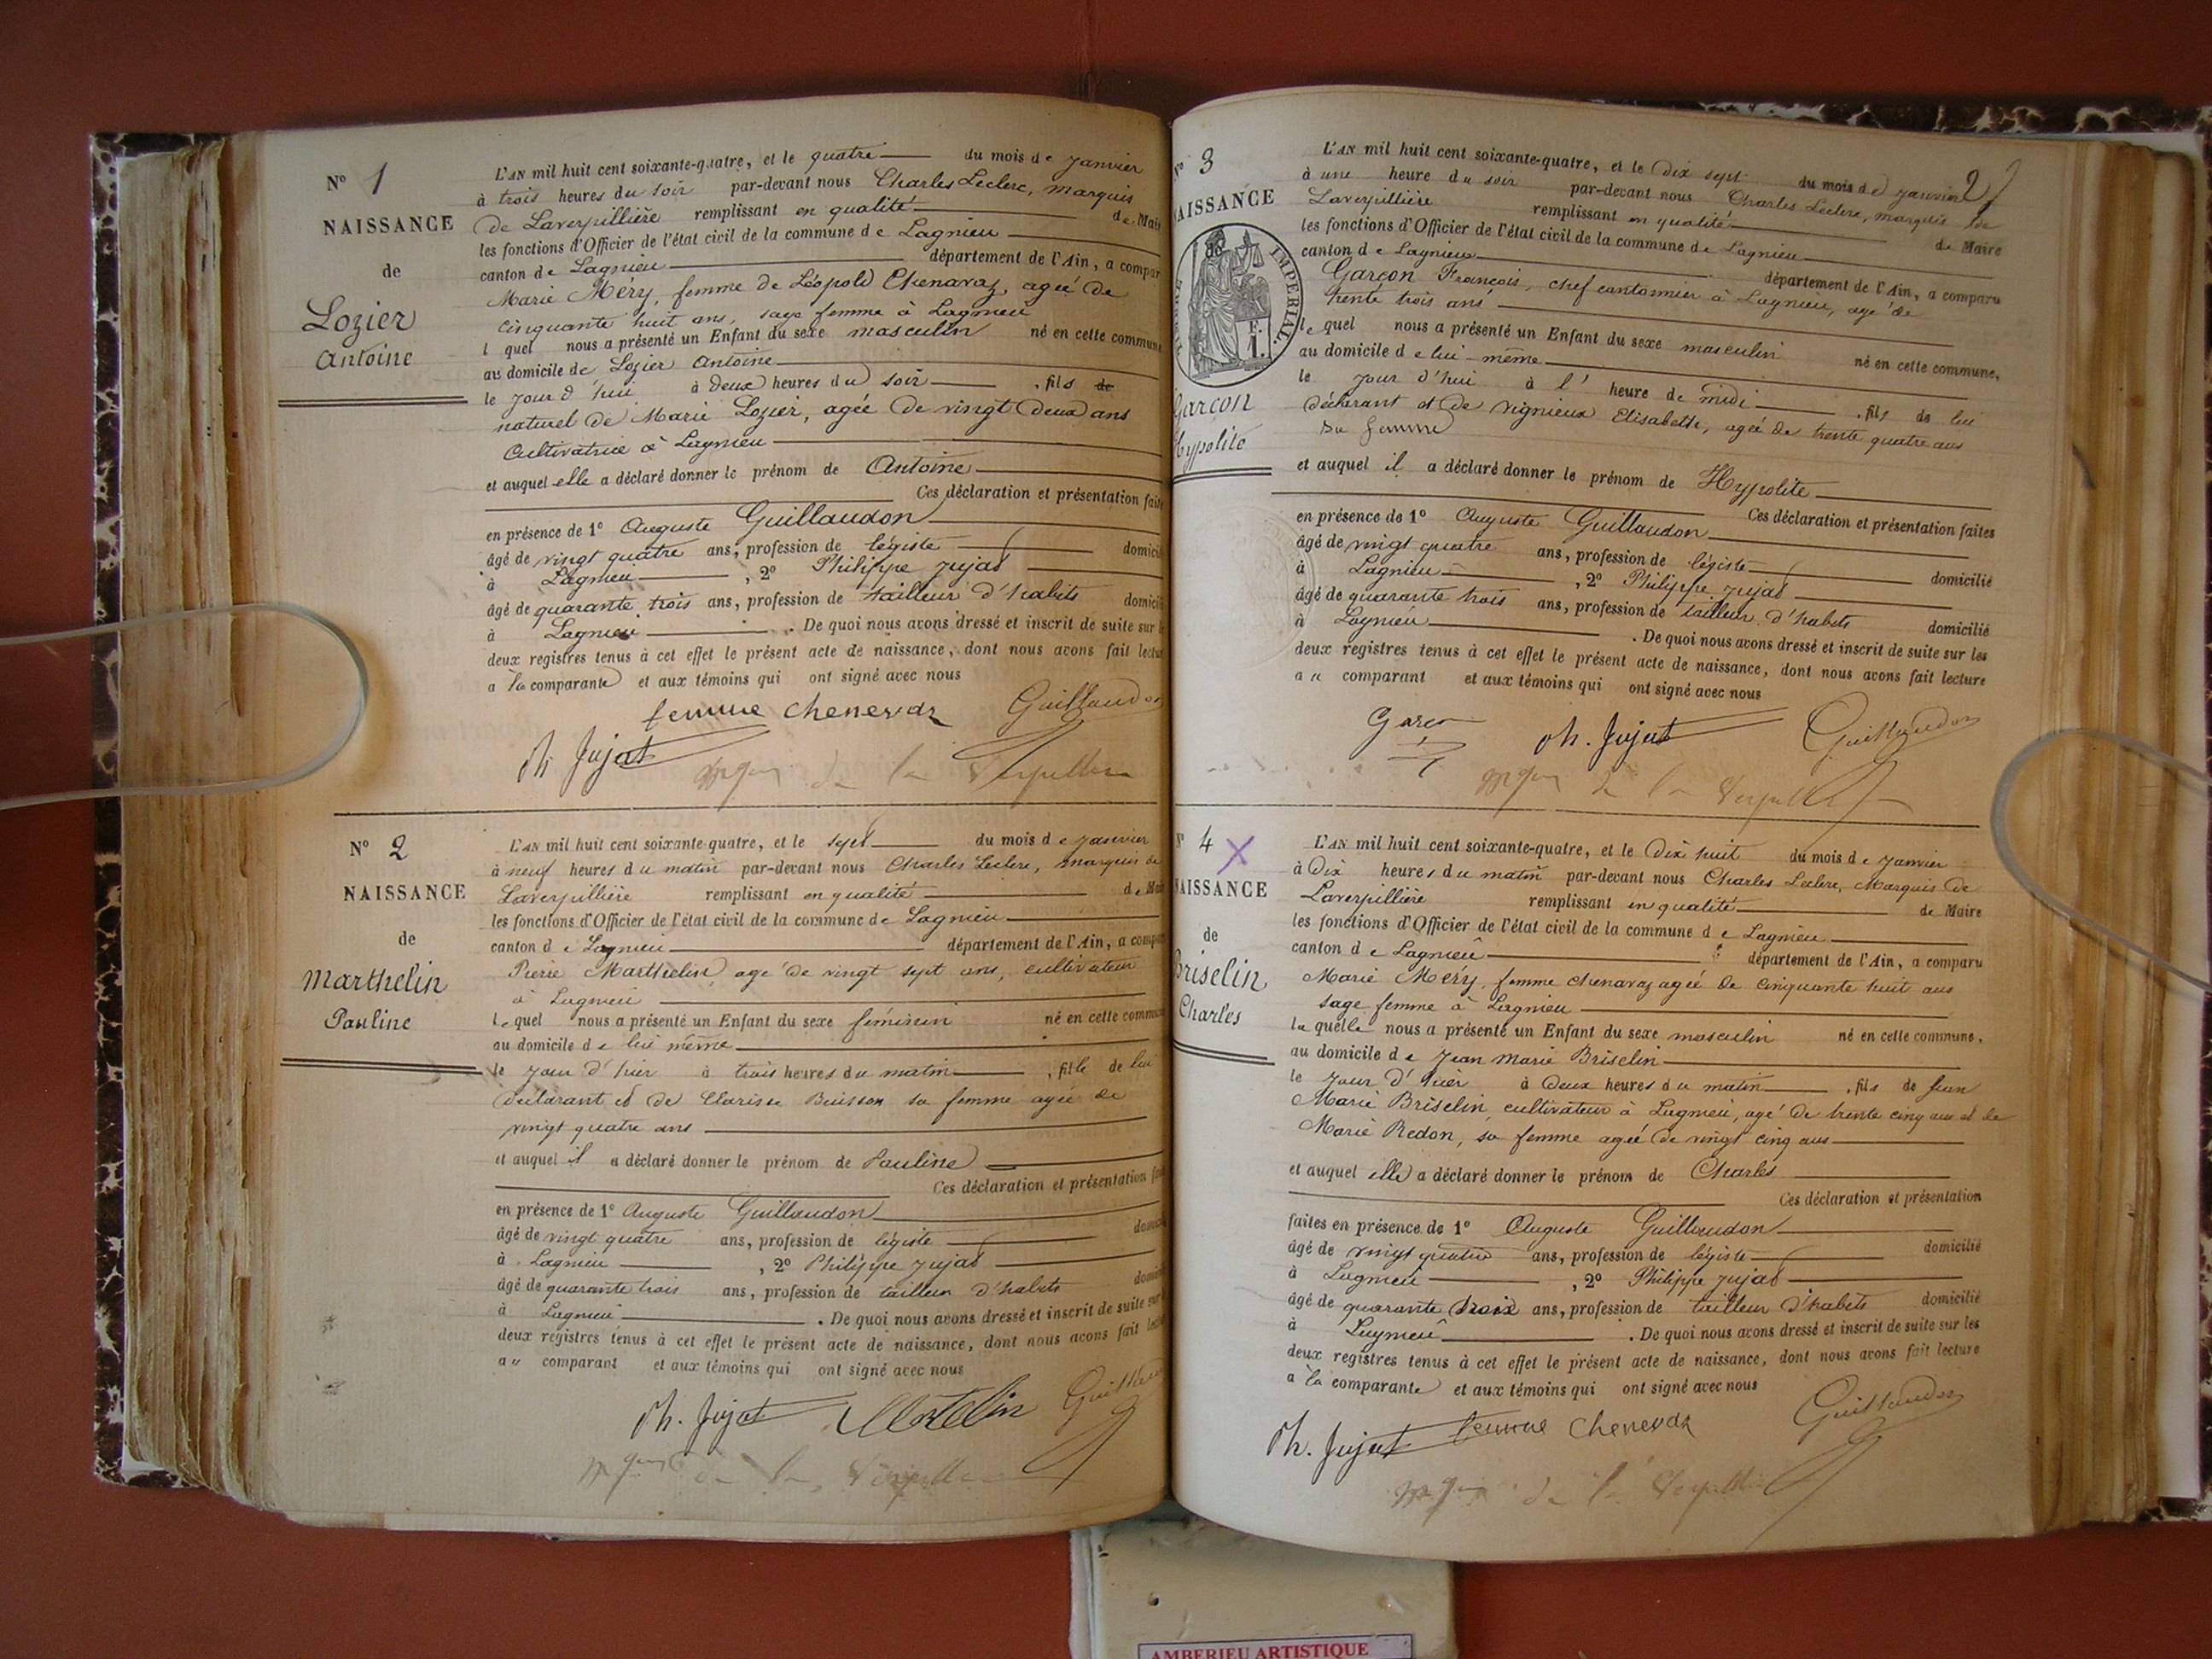 N° 1
NAISSANCE
de
Lozier
Antoine
L'AN mil huit cent soixante-quatre, et le quatre du mois de Janvier
à trois heures du soir par-devant nous Charles Leclerc, marquis
de Laverpillière remplissant en qualité de Mai
les fonctions d'Officier de l'état civil de la commune de Lagnieu
canton de Lagnieu département de l'Ain, a compar
Marie Méry, femme de Léopold Chenavaz, agée de
cinquante huit ans, sage femme à Lagnieu
l quel nous a présenté un Enfant du sexe masculin né en cette commune
au domicile de Lozier Antoine
le jour d'hui à deux heures du soir , fils de
naturel de Marie Lozier, agée de vingt deux ans
Cultivatrice à Lagnieu
et auquel elle a déclaré donner le prénom de Antoine
Ces déclaration et présentation faite
en présence de 1° Auguste Guillaudon
âgé de vingt quatre ans, profession de légiste domicili
à Lagnieu , 2° Philippe Jujat
âgé de quarante trois ans, profession de tailleur d'habits domicili
à Lagnieu . De quoi nous avons dressé et inscrit de suite sur l
deux registres tenus à cet effet le présent acte de naissance, dont nous avons fait lectur
a la comparante et aux témoins qui ont signé avec nous
femme chenevaz Guillaudon
Ph Jujat
de la Verpillière
N° 2
NAISSANCE
de
Marthelin
Pauline
L'AN mil huit cent soixante-quatre, et le sept du mois de Janvier
à neuf heures du matin par-devant nous Charles Leclerc, marquis de
Laverpillière remplissant en qualité de Mai
les fonctions d'Officier de l'état civil de la commune de Lagnieu
canton de Lagnieu département de l'Ain, a compa
Pierre Marthelin agé de vingt sept ans, cultivateur
à Lagnieu
lequel nous a présenté un Enfant du sexe féminin né en cette commun
au domicile de lui même
le jour d'hier à trois heures du matin , fille de lui
déclarant et de Clarisse Buisson sa femme agée de
vingt quatre ans
et auquel il a déclaré donner le prénom de Pauline
Ces déclaration et présentation fai
en présence de 1° Auguste Guillaudon
âgé de vingt quatre ans, profession de légiste domici
à Lagnieu , 2° Philippe Jujat
âgé de quarante trois ans, profession de tailleur d'habits domici
à Lagnieu . De quoi nous avons dressé et inscrit de suite sur
deux registres tenus à cet effet le présent acte de naissance, dont nous avons fait lect
a u comparant et aux témoins qui ont signé avec nous
Ph. Jujat Guillau
de la Verpillière
2
N° 3
NAISSANCE
TIMBRE IMPERIAL.
F. 1.
Garçon
Hypolite
L'AN mil huit cent soixante-quatre, et le Dix sept du mois de Janvier
à une heure du soir par-devant nous Charles Leclerc, marquis de
Laverpillière remplissant en qualité de Maire
les fonctions d'Officier de l'état civil de la commune de Lagnieu
canton de Lagnieu département de l'Ain, a comparu
Garçon François, chef cantonnier à Lagnieu, agé de
trente trois ans
lequel nous a présenté un Enfant du sexe masculin né en cette commune,
au domicile de lui-même
le jour d'hui à l' heure de midi , fils de lui
déclarant et de Vignieux Elisabeth, agée de trente quatre ans
sa femme
et auquel il a déclaré donner le prénom de Hypolite
Ces déclaration et présentation faites
en présence de 1° Auguste Guillaudon
âgé de vingt quatre ans, profession de légiste domicilié
à Lagnieu , 2° Philippe Jujat
âgé de quarante trois ans, profession de tailleur d'habits domicilié
à Lagnieu . De quoi nous avons dressé et inscrit de suite sur les
deux registres tenus à cet effet le présent acte de naissance, dont nous avons fait lecture
a u comparant et aux témoins qui ont signé avec nous
Garçon Ph. Jujat Guillaudon
de la Verpillière
N° 4 X
NAISSANCE
de
Briselin
Charles
L'AN mil huit cent soixante-quatre, et le Dix huit du mois de Janvier
à Dix heures du matin par-devant nous Charles Leclerc, Marquis de
Laverpillière remplissant en qualité de Maire
les fonctions d'Officier de l'état civil de la commune de Lagnieu
canton de Lagnieu département de l'Ain, a comparu
Marie Méry, femme chenavaz agée de cinquante huit ans
sage femme à Lagnieu
laquelle nous a présenté un Enfant du sexe masculin né en cette commune,
au domicile de Jean Marie Briselin
le jour d'hier à deux heures du matin , fils de Jean
Marie Briselin, cultivateur à Lagnieu, agé de trente cinq ans et de
Marie Redon, sa femme agée de vingt cinq ans
et auquel elle a déclaré donner le prénom de Charles
Ces déclaration et présentation
faites en présence de 1° Auguste Guillaudon
âgé de vingt quatre ans, profession de légiste domicilié
à Lagnieu , 2° Philippe Jujat
âgé de quarante trois ans, profession de tailleur d'habits domicilié
à Lagnieu . De quoi nous avons dressé et inscrit de suite sur les
deux registres tenus à cet effet le présent acte de naissance, dont nous avons fait lecture
a la comparante et aux témoins qui ont signé avec nous
Ph. Jujat femme Chenevaz Guillaudon
de la Verpillière
AMBERIEU ARTISTIQUE